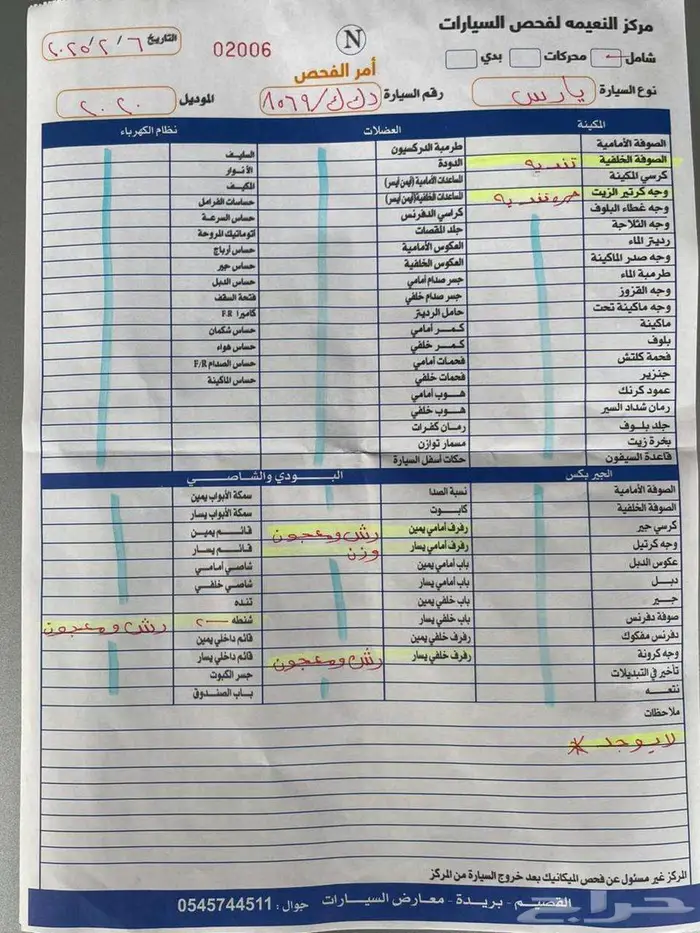 مركز النعيمه لفحص السيارات
N
02006
التاريخ ٢٠٢٥/٢/٦
شامل محركات بدي
أمر الفحص
نوع السيارة يارس رقم السيارة د ك ك / ١٥٦٩ الموديل ٢٠٢٠
المكينة العضلات نظام الكهرباء
الصوفة الأمامية طرمبة الدركسيون السليف
الصوفة الخلفية تنديه الدودة الأنوار
كرسي المكينة المساعدات الأمامية (أيمن أيسر) المكيف
وجه كرتير الزيت تنديه المساعدات الخلفية (أيمن أيسر) حساسات الفرامل
وجه غطاء البلوف كراسي الدفرنس حساس السرعة
وجه الثلاجة جلد المقصات أتوماتيك المروحة
رديتر الماء العكوس الأمامية حساس أرباج
وجه صدر الماكينة العكوس الخلفية حساس جير
طرمبة الماء جسر صدام أمامي حساس الدبل
وجه القزوز جسر صدام خلفي فتحة السقف
وجه ماكينة تحت حامل الرديتر كاميرا F.R
ماكينة كمر أمامي حساس شكمان
بلوف كمر خلفي حساس هواء
فحمة كلتش فحمات أمامي حساس الصدام F/R
جنزير فحمات خلفي حساس الماكينة
عمود كرنك هوب أمامي
رمان شداد السير هوب خلفي
جلد بلوف رمان كفرات
بخرة زيت مسمار توازن
قاعدة السيفون حكات أسفل السيارة
الجير بكس البودي والشاصي
الصوفة الأمامية نسبة الصدا سمكة الأبواب يمين
الصوفة الخلفية كابوت سمكة الأبواب يسار
كرسي جير رفرف أمامي يمين رش ومعجون قائم يمين
وجه كرتيل رفرف أمامي يسار وزن قائم يسار
عكوس الدبل باب أمامي يمين شاصي أمامي
دبل باب أمامي يسار شاصي خلفي
جير باب خلفي يمين تنده
صوفة دفرنس باب خلفي يسار شنطه رش ومعجون
دفرنس مفكوك رفرف خلفي يمين قائم داخلي يمين
وجه كرونة رفرف خلفي يسار رش ومعجون قائم داخلي يسار
تأخير في التبديلات جسر الكبوت
نتعه باب الصندوق
ملاحظات
* لا يوجد
المركز غير مسئول عن فحص الميكانيك بعد خروج السيارة من المركز
القصيم - بريدة - معارض السيارات جوال : 0545744511
حراج